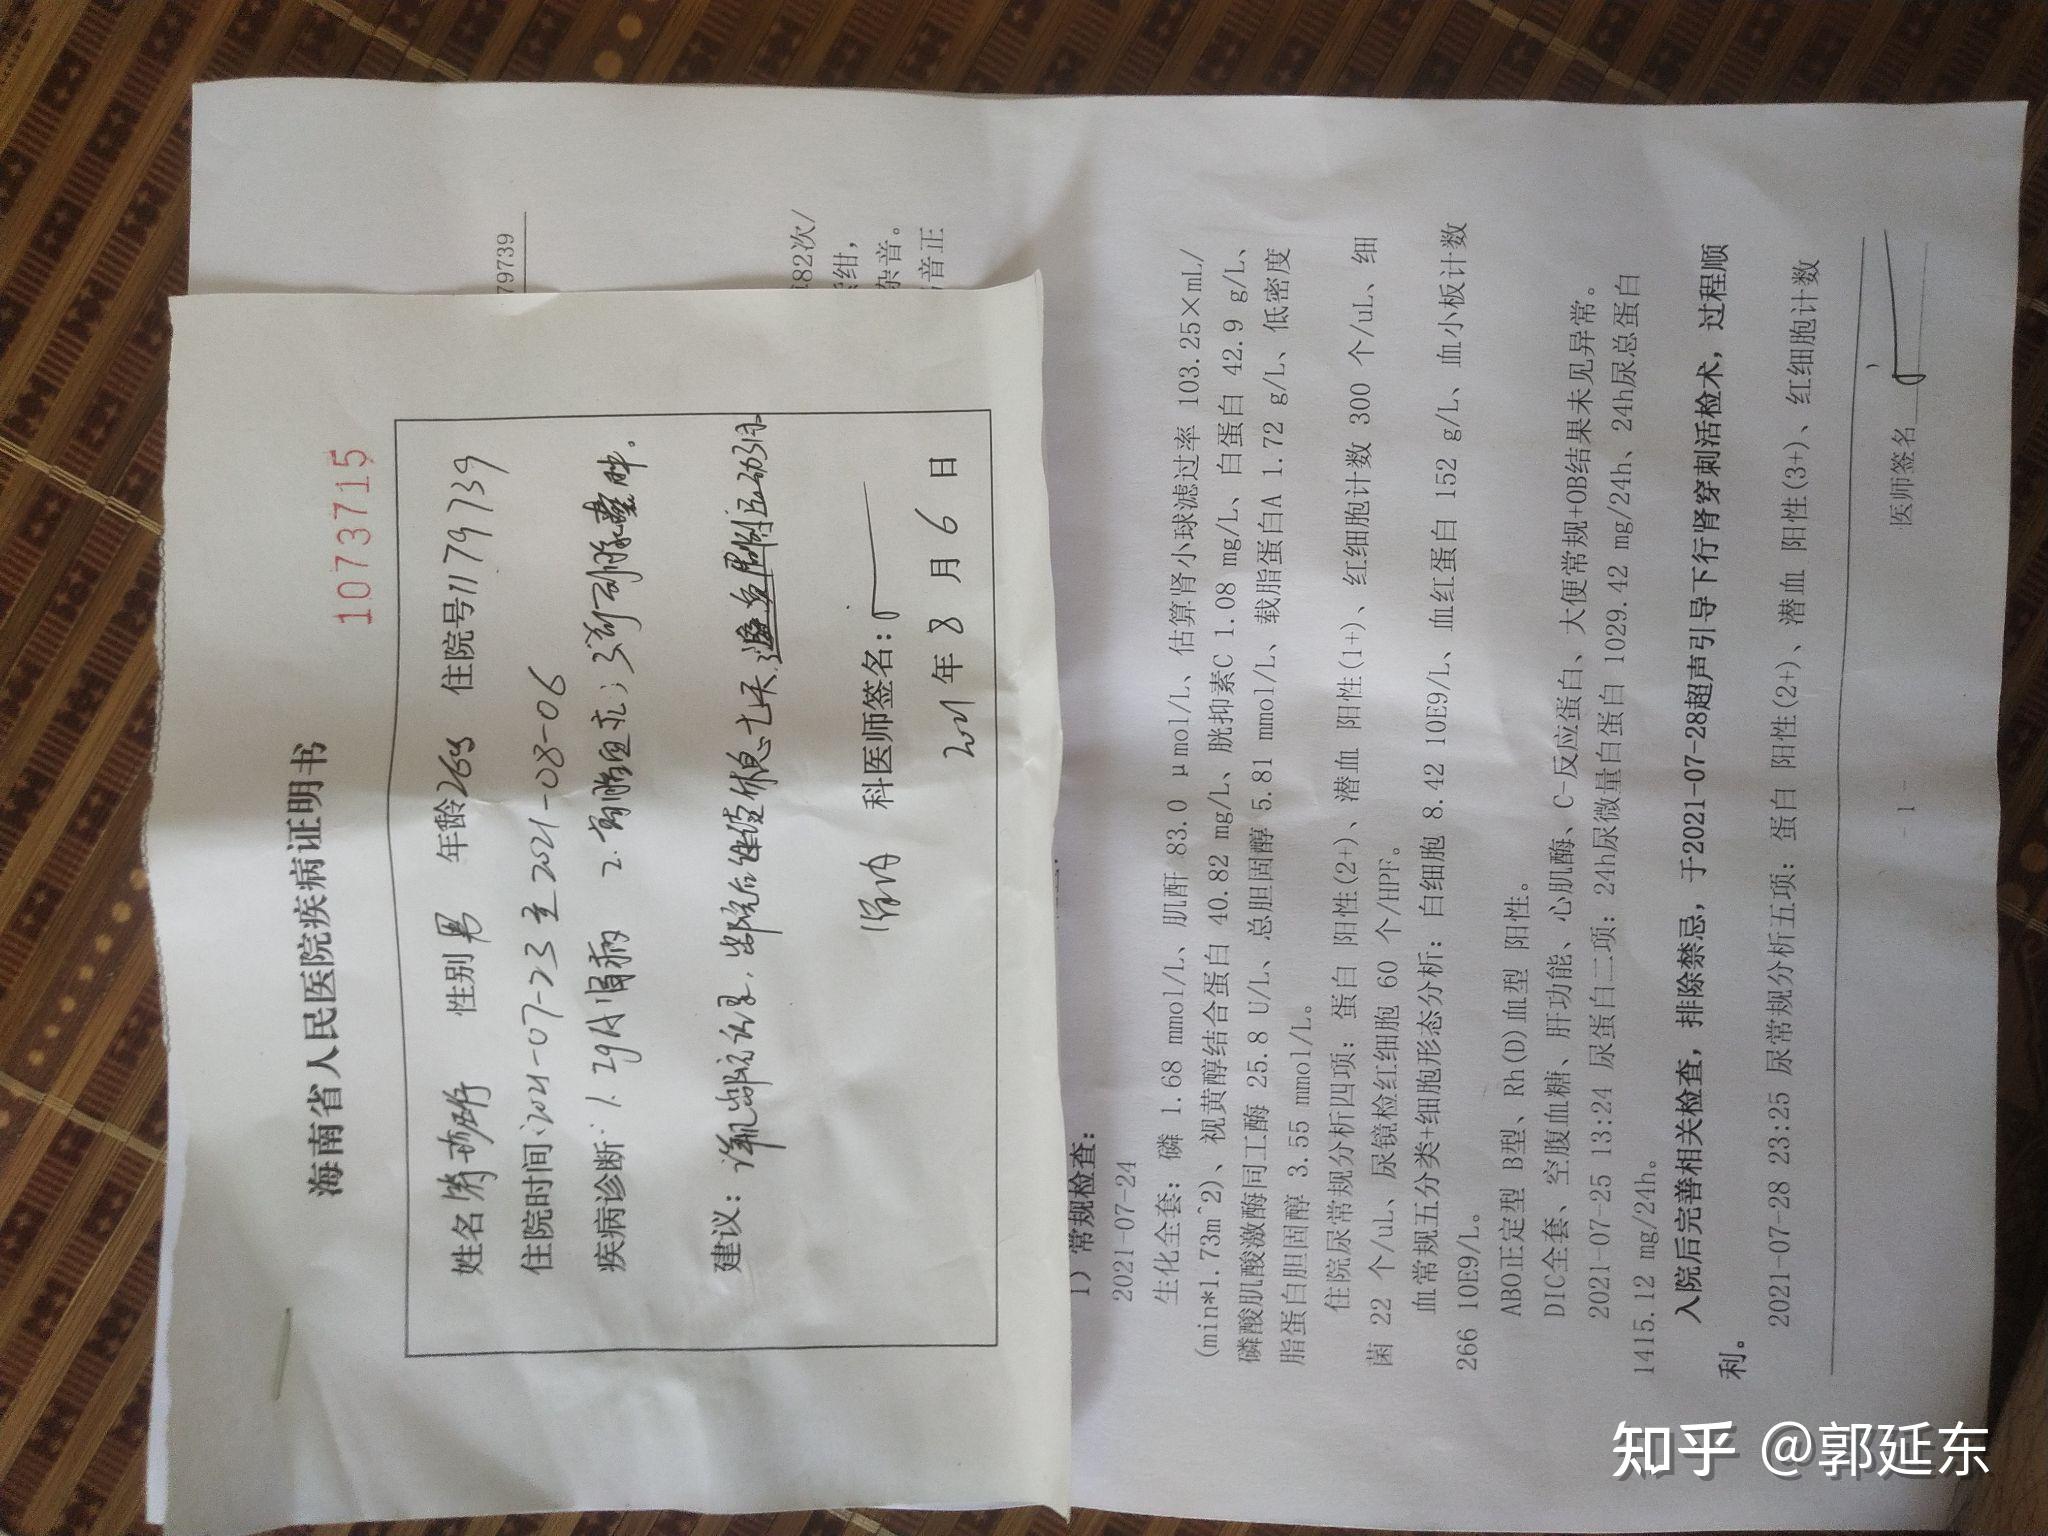 海南省人民医院疾病证明书
1073715
姓名 性别 男 年龄 26岁 住院号 1179739
住院时间:2021-07-23至2021-08-06
疾病诊断: 1. IgA肾病 2. 高脂血症;3.
建议: 详见出院记录,出院后建议休息七天,避免剧烈运动3月
肾内 科医师签名:
2021年8月6日
79739
82次/
绀,
杂音。
音正
1) 常规检查:
2021-07-24
生化全套: 磷 1.68 mmol/L、肌酐 83.0 μmol/L、估算肾小球滤过率 103.25×mL/
(min*1.73m^2)、视黄醇结合蛋白 40.82 mg/L、胱抑素C 1.08 mg/L、白蛋白 42.9 g/L、
磷酸肌酸激酶同工酶 25.8 U/L、总胆固醇 5.81 mmol/L、载脂蛋白A 1.72 g/L、低密度
脂蛋白胆固醇 3.55 mmol/L。
住院尿常规分析四项: 蛋白 阳性(2+)、潜血 阳性(1+)、红细胞计数 300 个/uL、细
菌 22 个/uL、尿镜检红细胞 60 个/HPF。
血常规五分类+细胞形态分析: 白细胞 8.42 10E9/L、血红蛋白 152 g/L、血小板计数
266 10E9/L。
ABO正定型 B型、Rh(D)血型 阳性。
DIC全套、空腹血糖、肝功能、心肌酶、C-反应蛋白、大便常规+OB结果未见异常。
2021-07-25 13:24 尿蛋白二项: 24h尿微量白蛋白 1029.42 mg/24h、24h尿总蛋白
1415.12 mg/24h。
入院后完善相关检查,排除禁忌,于2021-07-28超声引导下行肾穿刺活检术,过程顺
利。
2021-07-28 23:25 尿常规分析五项: 蛋白 阳性(2+)、潜血 阳性(3+)、红细胞计数
医师签名
- 1 -
知乎 @郭延东